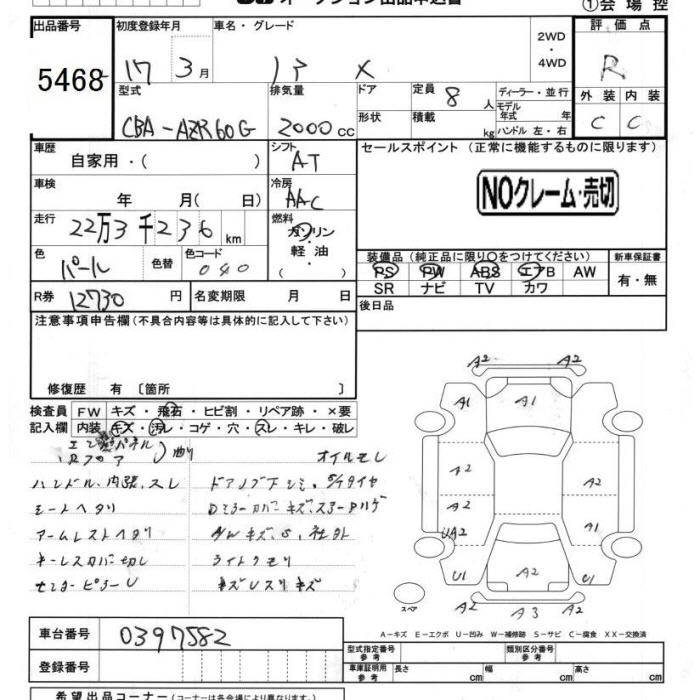 オークション出品申込書
①会場控
出品番号 初度登録年月 車名・グレード 2WD・4WD 評価点
5468 17 3月 X R
型式 排気量 ドア 定員 8人 ディーラー・並行 外装 内装
モデル年式 年
CBA-AZR60G 2000cc 形状 積載 kg ハンドル 左・右 C C
車歴 シフト セールスポイント (正常に機能するものに限ります)
自家用・( ) AT
車検 年 月( 日) 冷房 AAC NOクレーム・売切
走行 22万3千236km 燃料 ガソリン・軽油・( )
色 パール 色替 色コード 040
装備品(純正品に限り○をつけてください) 新車保証書
PS PW ABS エアB AW 有・無
SR ナビ TV カワ
R券 12730円 名変期限 月 日 後日品
注意事項申告欄(不具合内容等は具体的に記入して下さい)
修復歴 有 〔箇所 〕
検査員 FW キズ・飛石・ヒビ割・リペア跡・×要
記入欄 内装 キズ・汚レ・コゲ・穴・スレ・キレ・破レ
オイルモレ
ハンドル、内張、スレ
シートヘタリ
アームレストヘタリ
キーレスカバー切レ
センターピラーU
AWキズ、S、社外
ライトクモリ
A2 A2
A1 A1 A1
A2 A2
A2 A1
UA2
U1 A2 U1
スペア A2 A3 A2
A-キズ E-エクボ U-凹み W-補修跡 S-サビ C-腐食 XX-交換済
車台番号 0397582
型式指定番号 参考 類別区分番号 参考
登録番号 車庫証明用 参考 長さ cm 幅 cm 高さ cm
希望出品コーナー(コーナーは各会場により異なります)